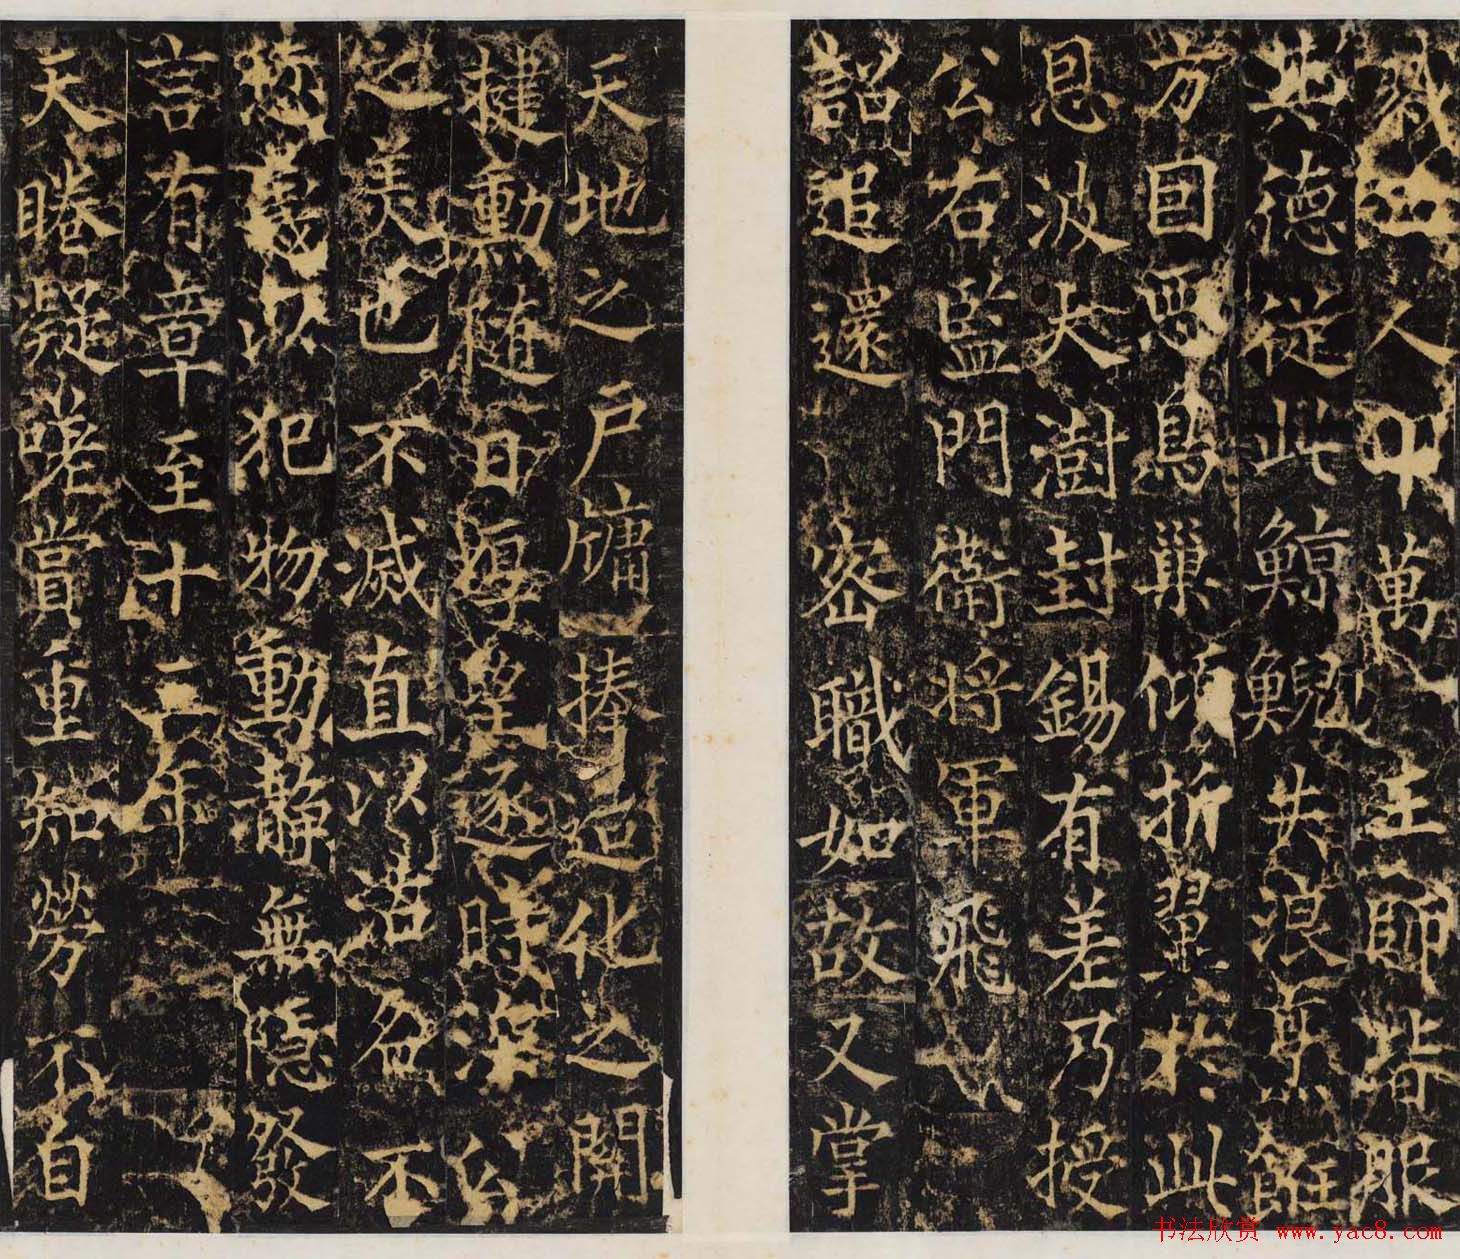 人甲萬王師堵服
其德從此鯨鯢失浪烹飪
方圓惡鳥巢傾折翼於此
恩波大澍封錫有差乃授
公右監門衛將軍飛
詔追還密職如故又掌
天地之戶牖捧造化之關
楗勳隨日厚望逐時深公
之美也不滅直以沽名不
愆義以犯物動靜無隱發
言有章至十二年
天睠疑嗟賞重知勞不自
书法欣赏 www.yac8.com